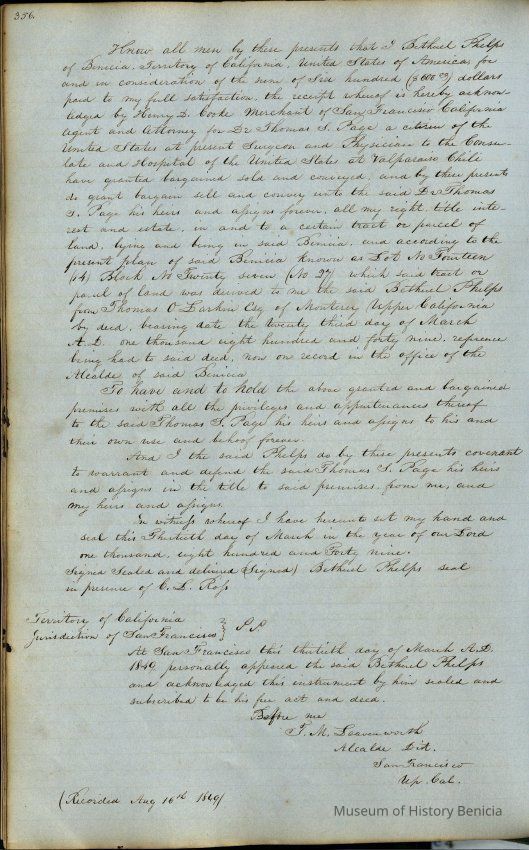 356.
Know all men by these presents that I Bethuel Phelps
of Benicia, Territory of California, United States of America, for
and in consideration of the sum of Six hundred ($600 00) dollars
paid to my full satisfaction, the receipt whereof is hereby acknow-
ledged by Henry D. Cooke Merchant of San Francisco California
agent and Attorney for Dr Thomas S. Page a citizen of the
United States at present Surgeon and Physician to the Consu-
late and Hospital of the United States at Valparaiso Chili
have granted bargained sold and conveyed, and by these presents
do grant bargain sell and convey unto the said Dr Thomas
S. Page his heirs and assigns forever, all my right, title inte-
rest and estate, in and to a certain tract or parcel of
land, lying and being in said Benicia, and according to the
present plan of said Benicia known as Lot No Fourteen
(14) Block No Twenty seven (No 27) which said tract or
parcel of land was derived to me the said Bethuel Phelps
from Thomas O Larkin Esq of Monterey (Upper California
by deed, bearing date the twenty third day of March
A.D. one thousand eight hundred and forty nine, reference
being had to said deed, now on record in the office of the
Alcalde of said Benicia
To have and to hold the above granted and bargained
premises with all the privileges and appurtenances thereof
to the said Thomas S. Page his heirs and assigns to his and
their own use and behoof forever.
And I the said Phelps do by these presents covenant
to warrant and defend the said Thomas S. Page his heirs
and assigns in the title to said premises from me, and
my heirs and assigns.
In witness whereof I have hereunto set my hand and
seal this Thirtieth day of March in the year of our Lord
one thousand, eight hundred and Forty nine.
Signed Sealed and delivered (Signed) Bethuel Phelps seal
in presence of C. L. Ross
Territory of California
Jurisdiction of San Francisco } S.S.
At San Francisco this thirtieth day of March A.D.
1849 personally appeared the said Bethuel Phelps
and acknowledged this instrument by him sealed and
subscribed to be his free act and deed.
Before me
T. M. Leavenworth
Alcalde Dist.
San Francisco
Up. Cal.
(Recorded Aug 16th 1849)
Museum of History Benicia